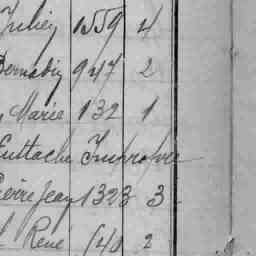 Julien 1559 4
Barnabin 947 2
Marie 132 1
Eustache Impropre
Pierre Jean 1323 3
René 140 2